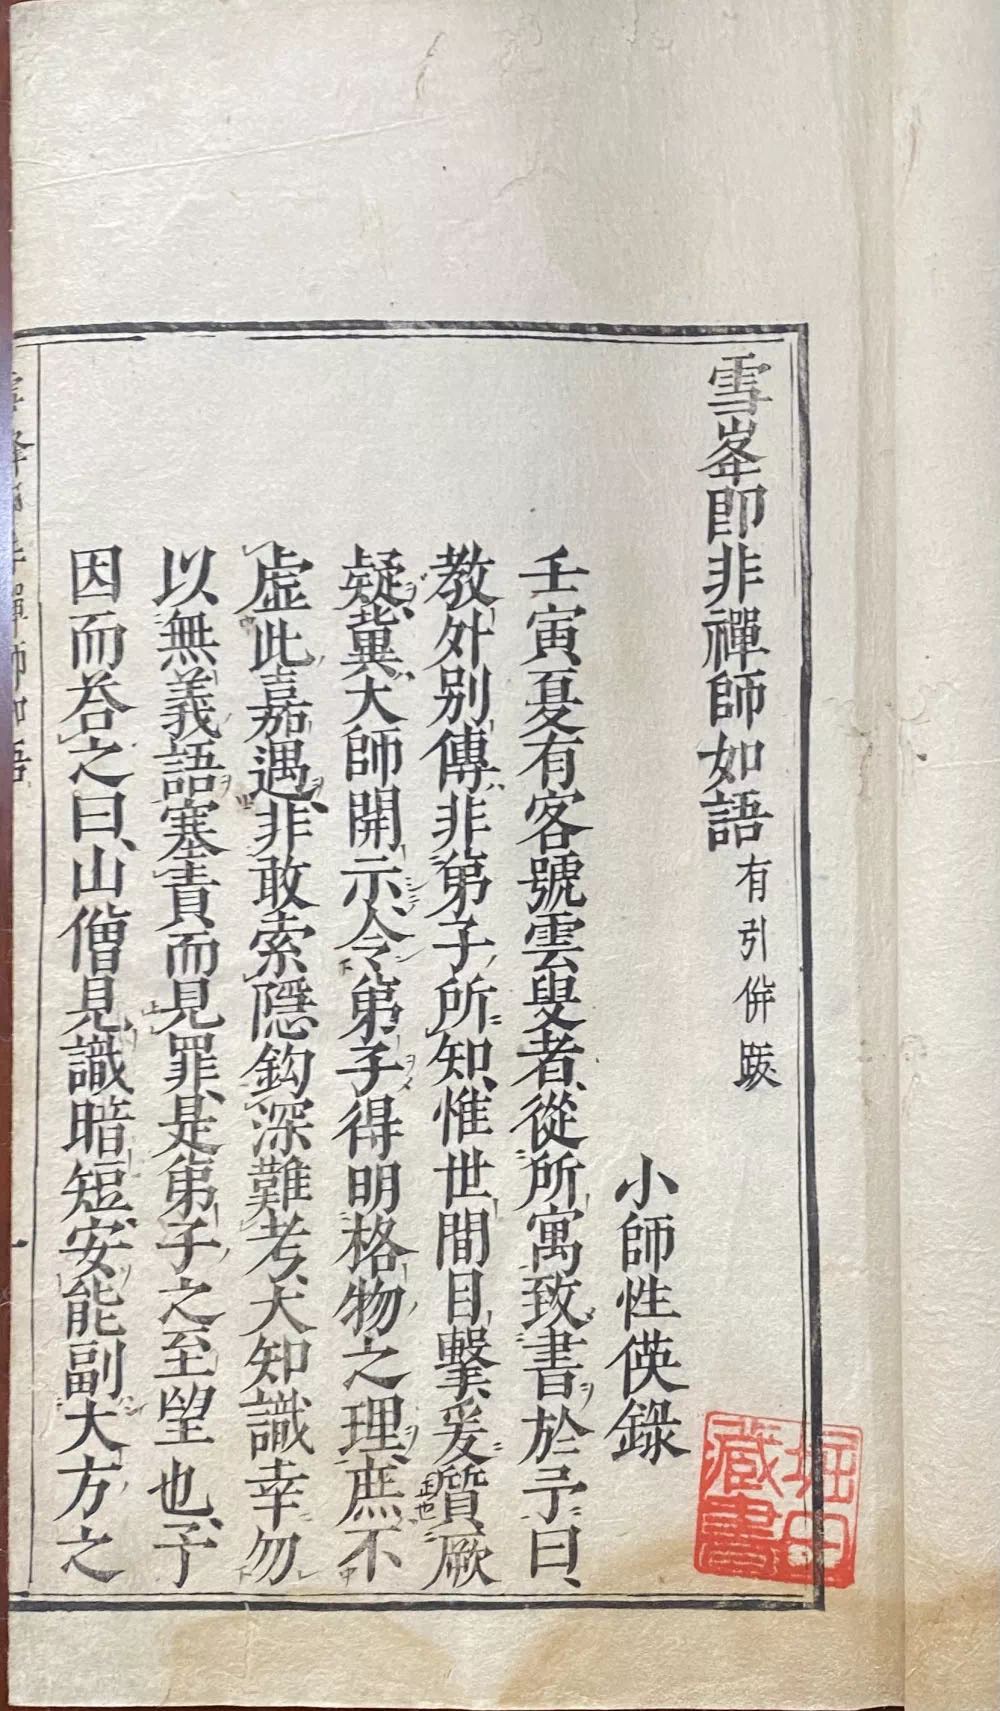 雪峯即非禪師如語 有引併䟦
小師性偀錄
壬寅夏有客號雲叟者、從所寓致書於予曰、
教外別傳、非弟子所知、惟世間目擊、爰質厥
疑、冀大師開示、令弟子得明格物之理、庶不
虛此嘉遇、非敢索隱鈎深難考、大知識幸勿
以無義語塞責而見罪、是弟子之至望也、予
因而荅之曰、山僧見識暗短、安能副大方之
堀田
藏書